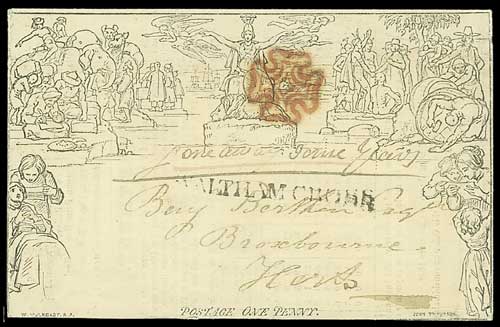 gone away some years
WALTHAM CROSS
Benj
Esq
Broxbourne
Herts
POSTAGE ONE PENNY.
W. MULREADY. R.A.
JOHN THOMPSON